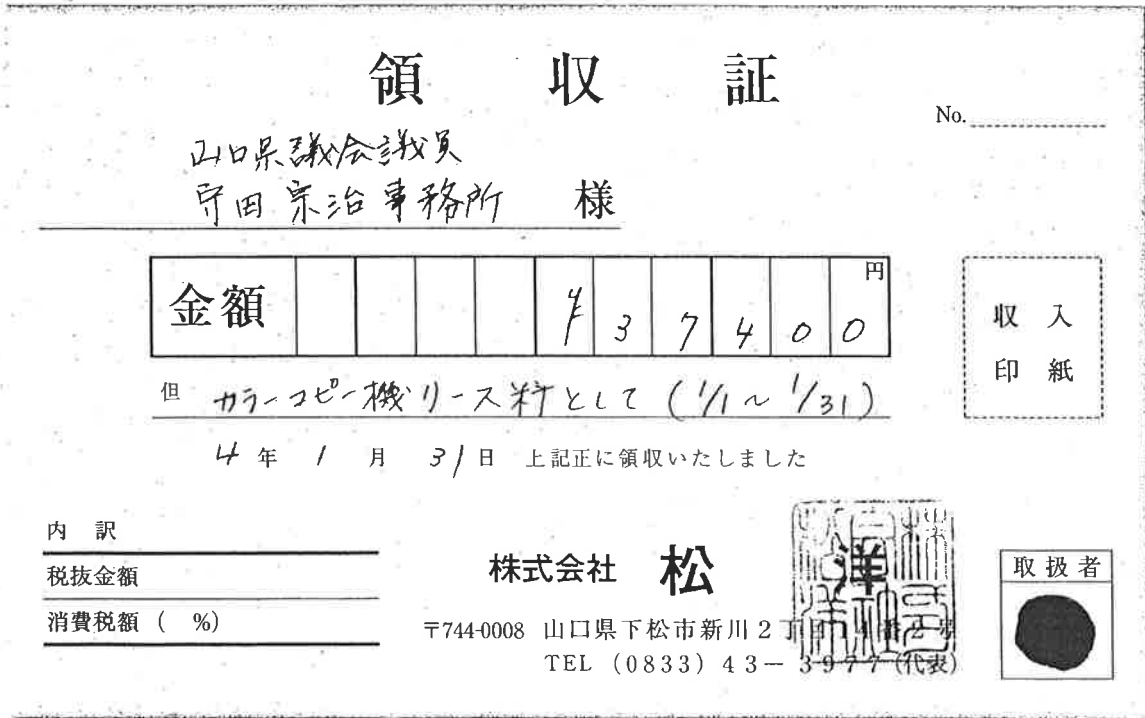 領収証
No.
山口県議会議員
守田宗治事務所 様
金額 ¥37400 円
収入
印紙
但 カラーコピー機リース料として (1/1~1/31)
4年1月31日 上記正に領収いたしました
内訳
税抜金額
消費税額 ( %)
株式会社 松洋
取扱者
〒744-0008 山口県下松市新川2丁目
TEL (0833) 43-3977 (代表)